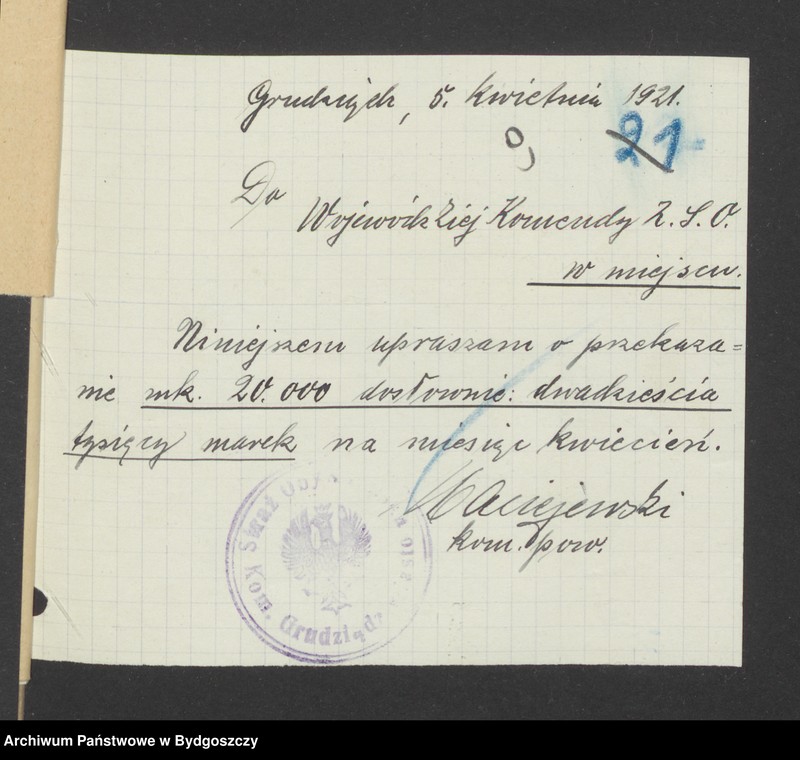 Grudziądz, 5. kwietnia 1921.
21
Do
Wojewódzkiej Komendy Z. S. O.
w miejscu.
Niniejszem upraszam o przekaza=
nie mk. 20.000 dosłownie: dwadzieścia
tysięcy marek na miesiąc kwiecień.
Maciejewski
kom. pow.
Straż Oby
Kom. Grudziądz
Archiwum Państwowe w Bydgoszczy